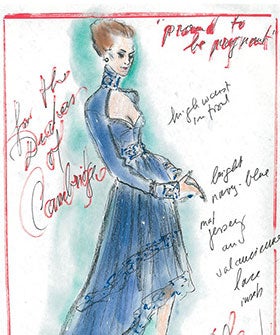 "proud to
be pregnant"
for the
Duchess
of
Cambridge
high waist
in front
bright
navy blue
mat
jersey
and
valancienne
lace